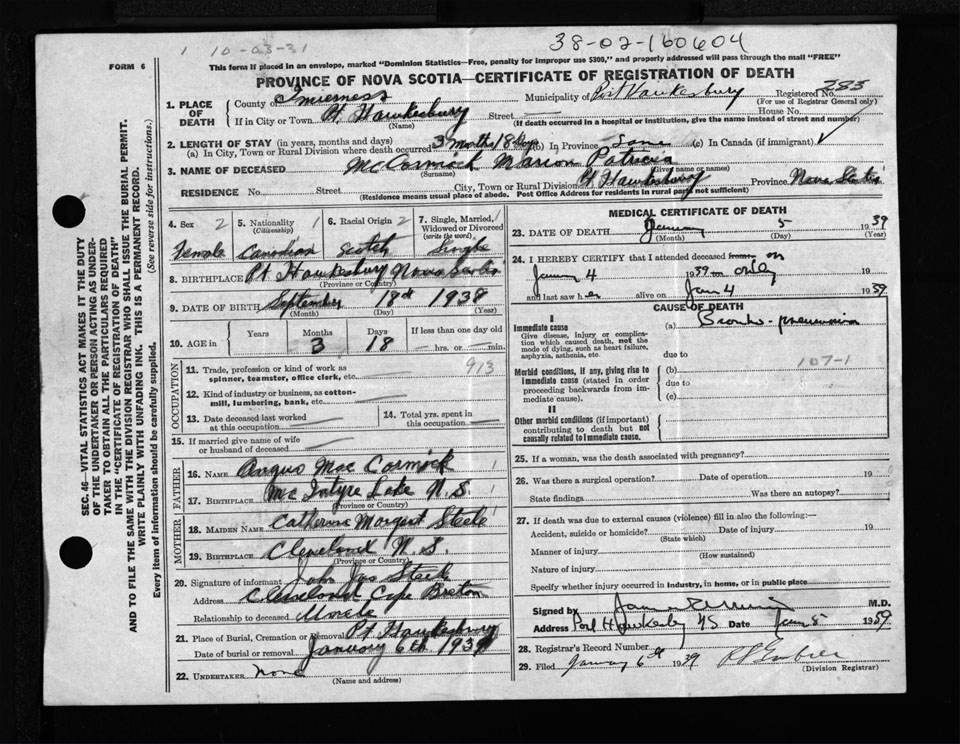 1 10-03-31
38-02-160604
FORM 6
This form if placed in an envelope, marked "Dominion Statistics—Free, penalty for improper use $300," and properly addressed will pass through the mail "FREE"
PROVINCE OF NOVA SCOTIA—CERTIFICATE OF REGISTRATION OF DEATH
SEC. 46—VITAL STATISTICS ACT MAKES IT THE DUTY
OF THE UNDERTAKER OR PERSON ACTING AS UNDER-
TAKER TO OBTAIN ALL THE PARTICULARS REQUIRED
IN THE "CERTIFICATE OF REGISTRATION OF DEATH"
AND TO FILE THE SAME WITH THE DIVISION REGISTRAR WHO SHALL ISSUE THE BURIAL PERMIT.
WRITE PLAINLY WITH UNFADING INK. THIS IS A PERMANENT RECORD.
Every item of information should be carefully supplied. (See reverse side for instructions.)
1. PLACE OF DEATH
County of Inverness Municipality of Port Hawkesbury Registered No. 285
(For use of Registrar General only)
If in City or Town Pt. Hawkesbury Street House No.
(Name) (If death occurred in a hospital or institution, give the name instead of street and number)
2. LENGTH OF STAY (in years, months and days)
(a) In City, Town or Rural Division where death occurred 3 months 18 days (b) In Province Same (c) In Canada (if immigrant)
3. NAME OF DECEASED McCormick Marion Patricia
(Surname) (Given name or names)
RESIDENCE No. Street City, Town or Rural Division Pt Hawkesbury Province Nova Scotia
(Residence means usual place of abode. Post Office Address for Residents in rural parts not sufficient)
4. Sex 2 5. Nationality 1 6. Racial Origin 2 7. Single, Married, 1
(Citizenship) Widowed or Divorced
(write the word)
Female Canadian Scotch Single
8. BIRTHPLACE Pt Hawkesbury Nova Scotia
(Province or Country)
9. DATE OF BIRTH September 18th 1938
(Month) (Day) (Year)
10. AGE in Years Months Days If less than one day old
3 18 hrs. or min.
OCCUPATION
11. Trade, profession or kind of work as 913
spinner, teamster, office clerk, etc.
12. Kind of industry or business, as cotton-
mill, lumbering, bank, etc.
13. Date deceased last worked
at this occupation
14. Total yrs. spent in
this occupation
15. If married give name of wife
or husband of deceased
FATHER
16. NAME Angus Mac Cormick
17. BIRTHPLACE Mc Intyre Lake N.S.
(Province or Country)
MOTHER
18. MAIDEN NAME Catherine Margaret Steele
19. BIRTHPLACE Cleveland N.S.
(Province or Country)
20. Signature of informant John Jas Steele
Address Cleveland Cape Breton
Relationship to deceased Uncle
21. Place of Burial, Cremation or Removal Pt Hawkesbury
Date of burial or removal January 6th 1939
22. UNDERTAKER None
(Name and address)
MEDICAL CERTIFICATE OF DEATH
23. DATE OF DEATH January 5 1939
(Month) (Day) (Year)
24. I HEREBY CERTIFY that I attended deceased from on
January 4 1939 to only 19
and last saw her alive on Jan 4 1939
CAUSE OF DEATH
I
Immediate cause (a) Broncho-pneumonia
Give disease, injury or complica-
tion which caused death, not the
mode of dying, such as heart failure,
asphyxia, asthenia, etc.
due to 107-1
Morbid conditions, if any, giving rise to (b)
immediate cause (stated in order due to
proceeding backwards from im-
mediate cause). (c)
II
Other morbid conditions (if important)
contributing to death but not
causally related to immediate cause.
25. If a woman, was the death associated with pregnancy?
26. Was there a surgical operation? Date of operation 19
State findings Was there an autopsy?
27. If death was due to external causes (violence) fill in also the following:—
Accident, suicide or homicide? Date of injury 19
(State which)
Manner of injury
(How sustained)
Nature of injury
Specify whether injury occurred in industry, in home, or in public place
Signed by M.D.
Address Port Hawkesbury NS Date Jan 5 1939
28. Registrar's Record Number
29. Filed January 6th 1939
(Division Registrar)